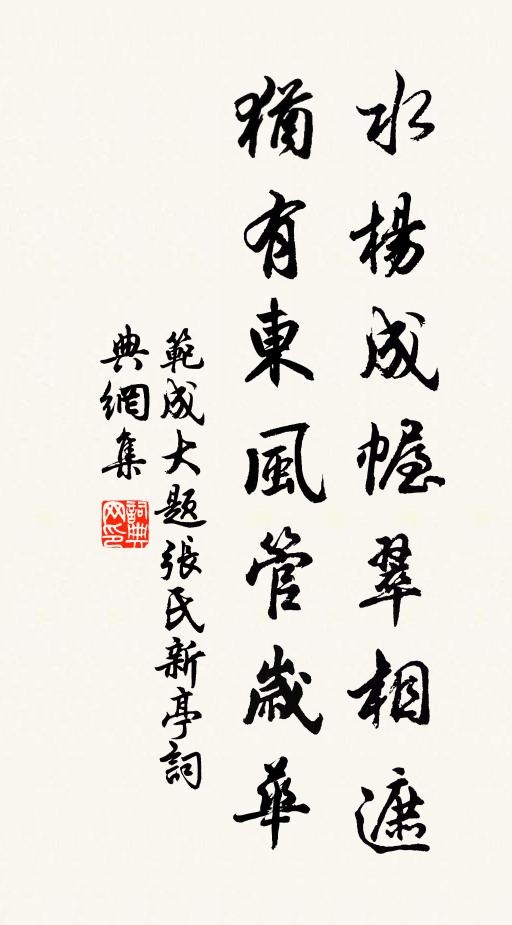 水楊成幄翠相遮
猶有東風管歲華
範成大題張氏新亭詞
典網集
詞典網印